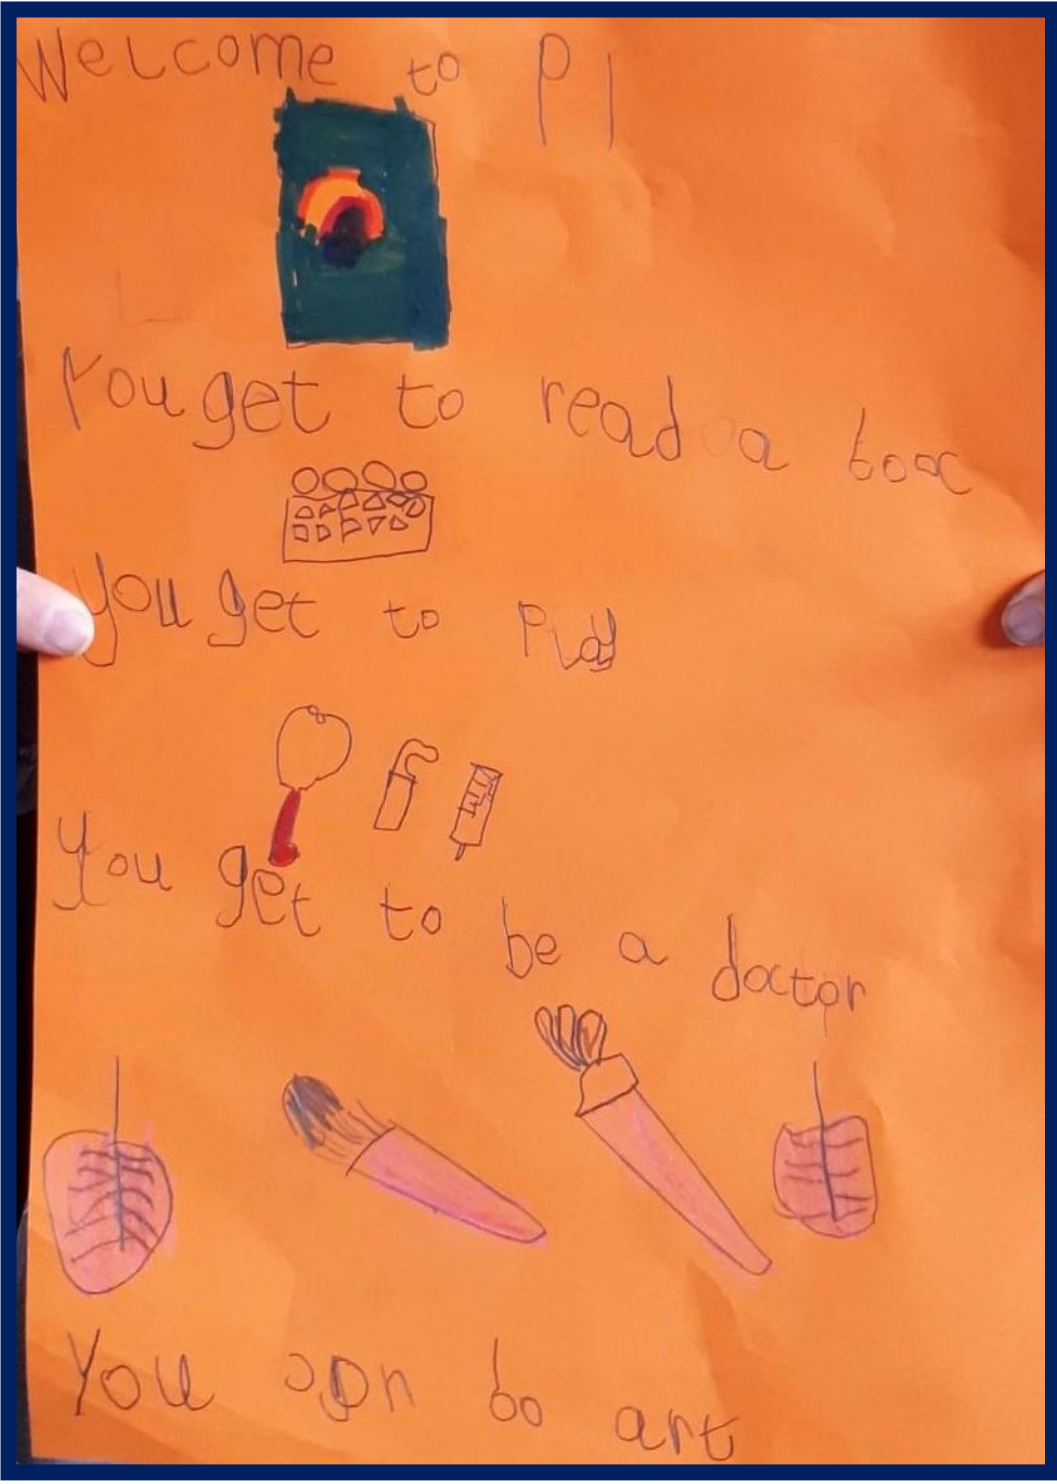 Welcome to P1
You get to read a booc
You get to Play
You get to be a doctor
You can bo art